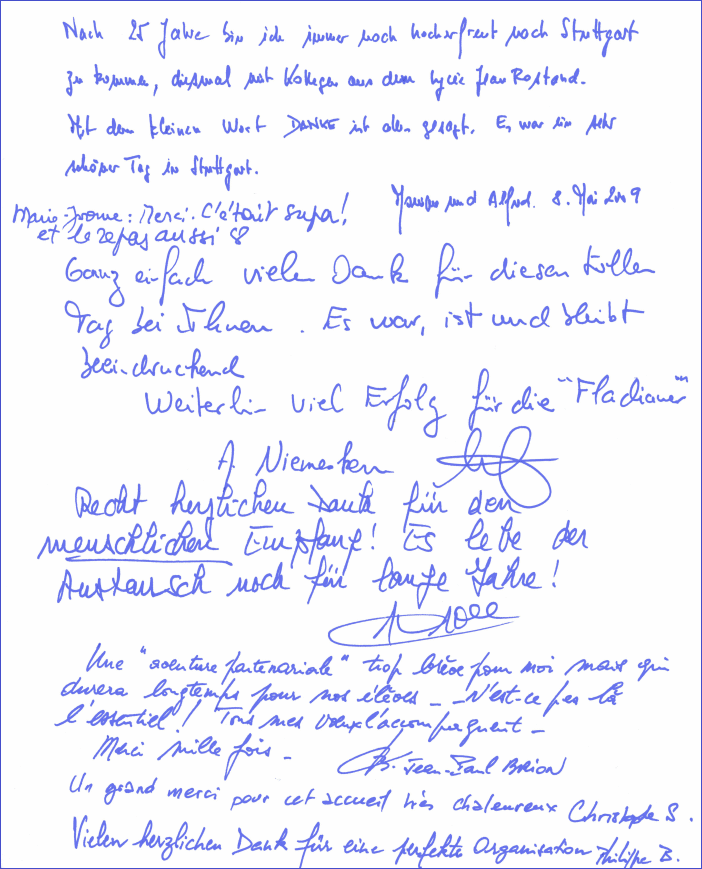 Nach 25 Jahre bin ich immer noch hocherfreut nach Stuttgart
zu kommen, diesmal mit Kollegen aus dem Lycée Jean Rostand.
Mit dem kleinen Wort DANKE ist alles gesagt. Es war ein sehr
schöner Tag in Stuttgart.
und Alfred. 8. Mai 2009
Marie-Yvonne: Merci. C'était super!
et le repas aussi
Ganz einfach vielen Dank für diesen tollen
Tag bei Ihnen. Es war, ist und bleibt
beeindruckend
Weiterhin viel Erfolg für die "Fladianer"
A.
Recht herzlichen Dank für den
menschlichen Empfang! Es lebe der
Austausch noch für lange Jahre!
Une "aventure partenariale" trop brève pour moi mais qui
durera longtemps pour nos élèves - N'est-ce pas là
l'essentiel! Tous mes voeux l'accompagnent -
Merci mille fois -
Jean-Paul Brion
Un grand merci pour cet accueil très chaleureux Christophe S.
Vielen herzlichen Dank für eine perfekte Organisation Philippe B.